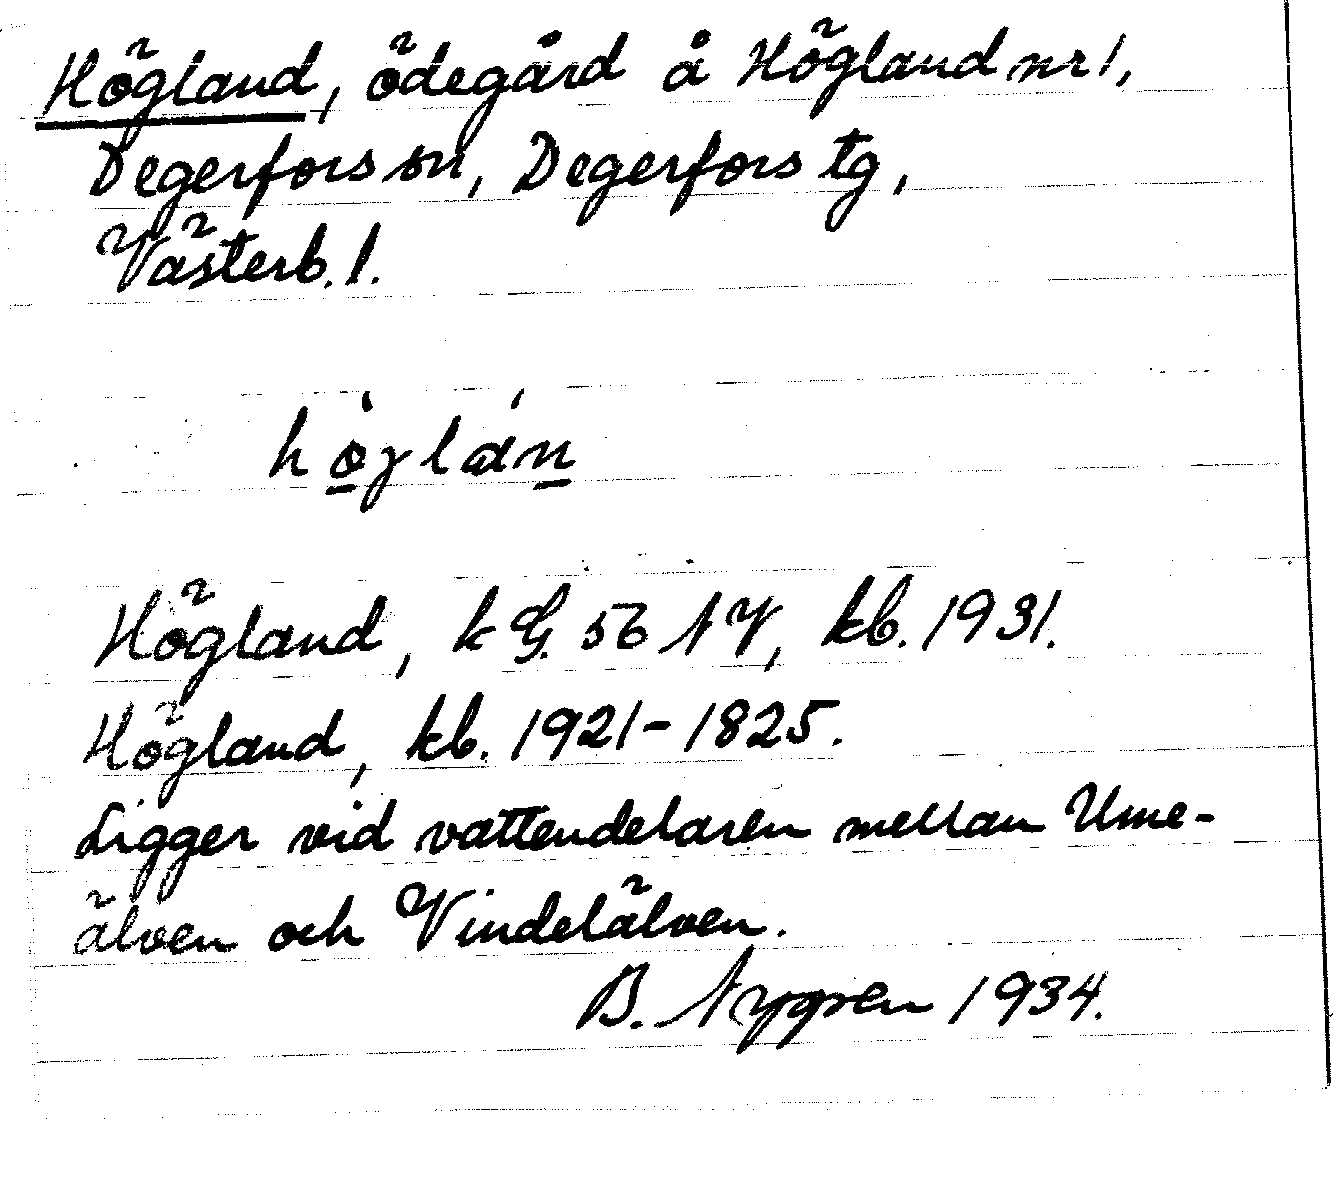 Högland, ödegård å Högland nr 1,
Degerfors sn, Degerfors tg,
Västerb. l.
Högland, kG. 56 NV, kb. 1931.
Högland, kb. 1921-1825.
Ligger vid vattendelaren mellan Ume-
älven och Vindelälven.
B. Nygren 1934.